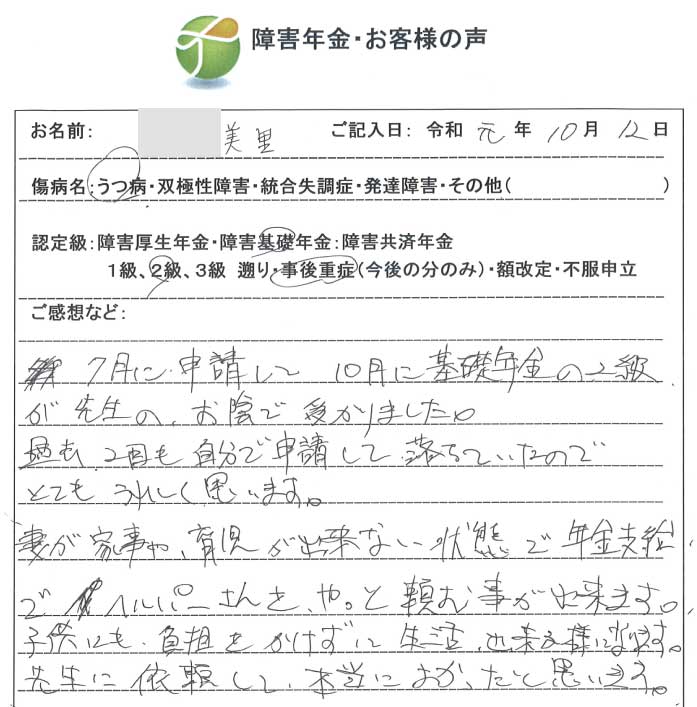 障害年金・お客様の声
お名前: 美里 ご記入日: 令和 元 年 10 月 12 日
傷病名:うつ病・双極性障害・統合失調症・発達障害・その他( )
認定級:障害厚生年金・障害基礎年金:障害共済年金
1級、2級、3級 遡り・事後重症(今後の分のみ)・額改定・不服申立
ご感想など:
7月に申請して 10月に基礎年金の2級
が先生の、お陰で受かりました。
過去、2回も自分で申請して落ちていたので
とてもうれしく思います。
妻が家事や、育児が出来ない状態で年金支給、
でヘルパーさんを、やっと頼む事が出来ます。
子供にも、負担をかけずに生活出来る様になります。
先生に依頼して、本当によかったと思います。